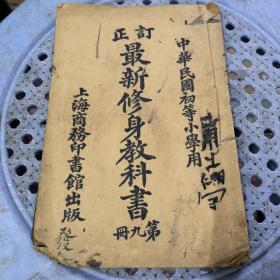 中華民國初等小學用
訂正
最新修身教科書
第九冊
上海商務印書館出版